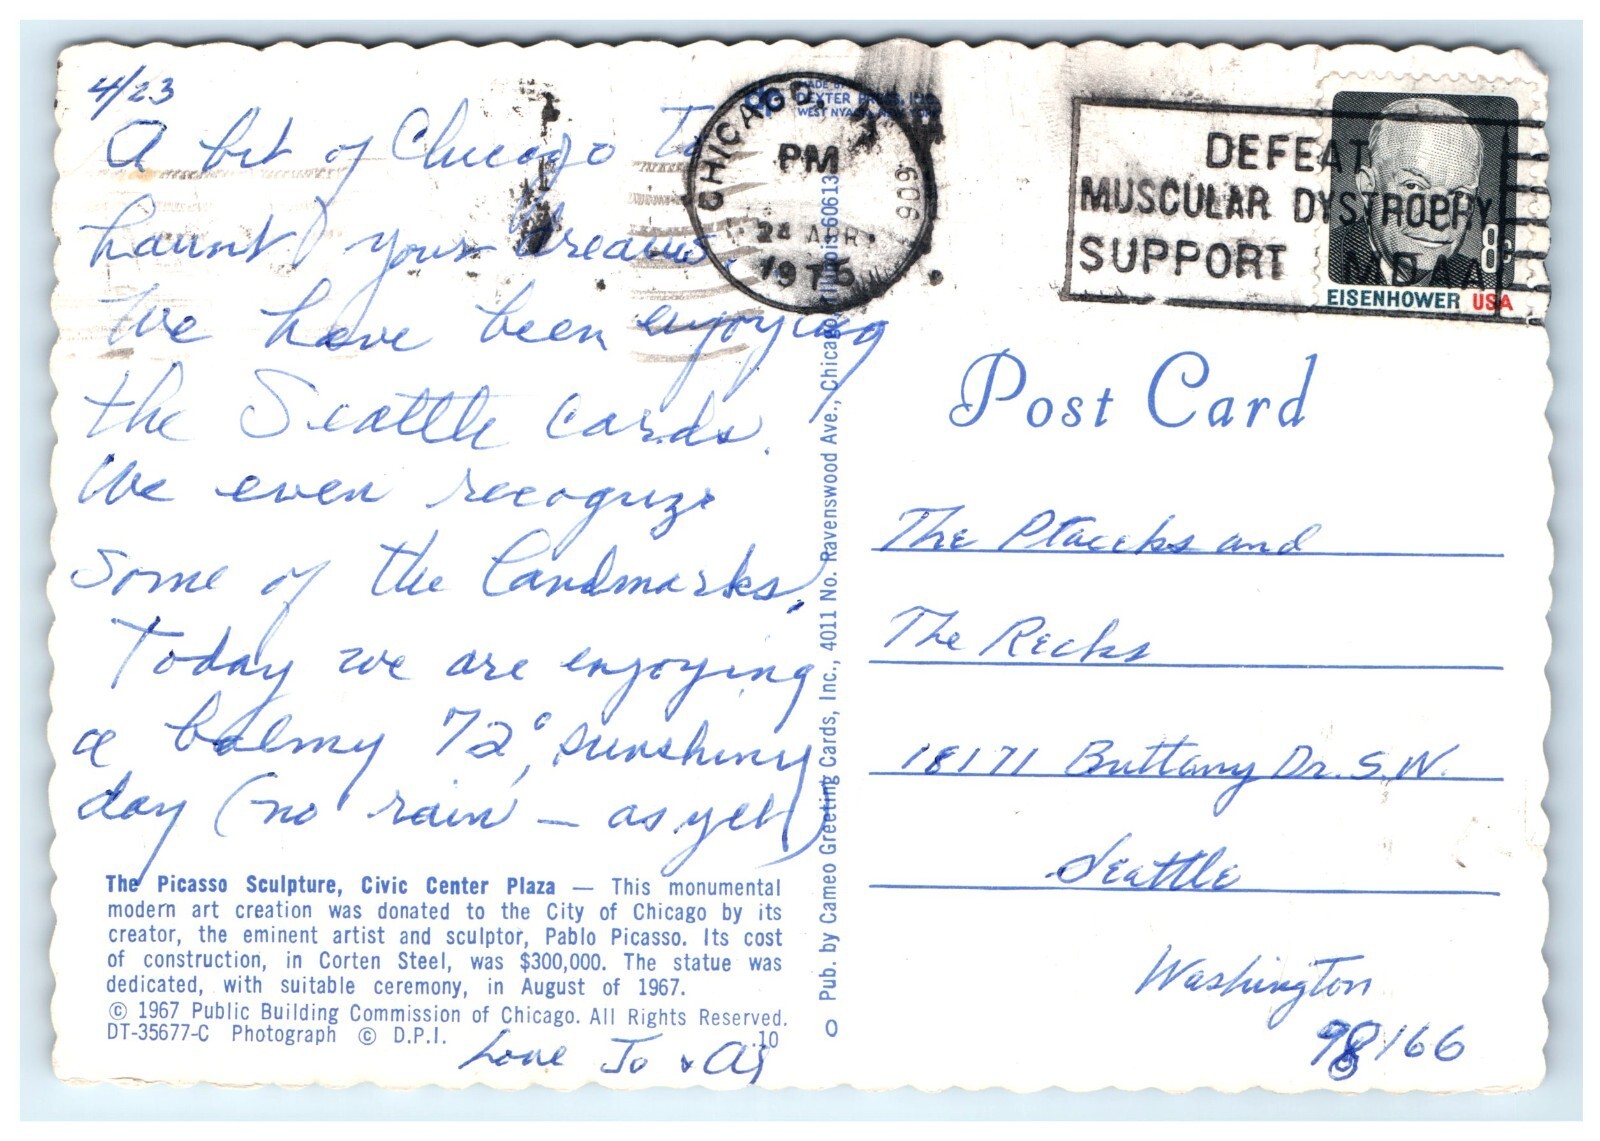 4/23
A bit of Chicago to
haunt your dreams.
We have been enjoying
the Seattle cards.
We even recognize
some of the landmarks.
Today we are enjoying
a balmy 72°, sunshiny
day (no rain — as yet)
The Picasso Sculpture, Civic Center Plaza — This monumental
modern art creation was donated to the City of Chicago by its
creator, the eminent artist and sculptor, Pablo Picasso. Its cost
of construction, in Corten Steel, was $300,000. The statue was
dedicated, with suitable ceremony, in August of 1967.
© 1967 Public Building Commission of Chicago. All Rights Reserved.
DT-35677-C Photograph © D.P.I. .10
Love Jo & Al
Pub. by Cameo Greeting Cards, Inc., 4011 No. Ravenswood Ave., Chicago, Illinois 60613
MADE BY
DEXTER PRESS, INC.
WEST NYACK, NEW YORK
CHICAGO
PM
24 APR
1975
606
DEFEAT
MUSCULAR DYSTROPHY
SUPPORT MDAA
8c
EISENHOWER USA
Post Card
The Ptaceks and
The Recks
18171 Brittany Dr. S.W.
Seattle
Washington
98166